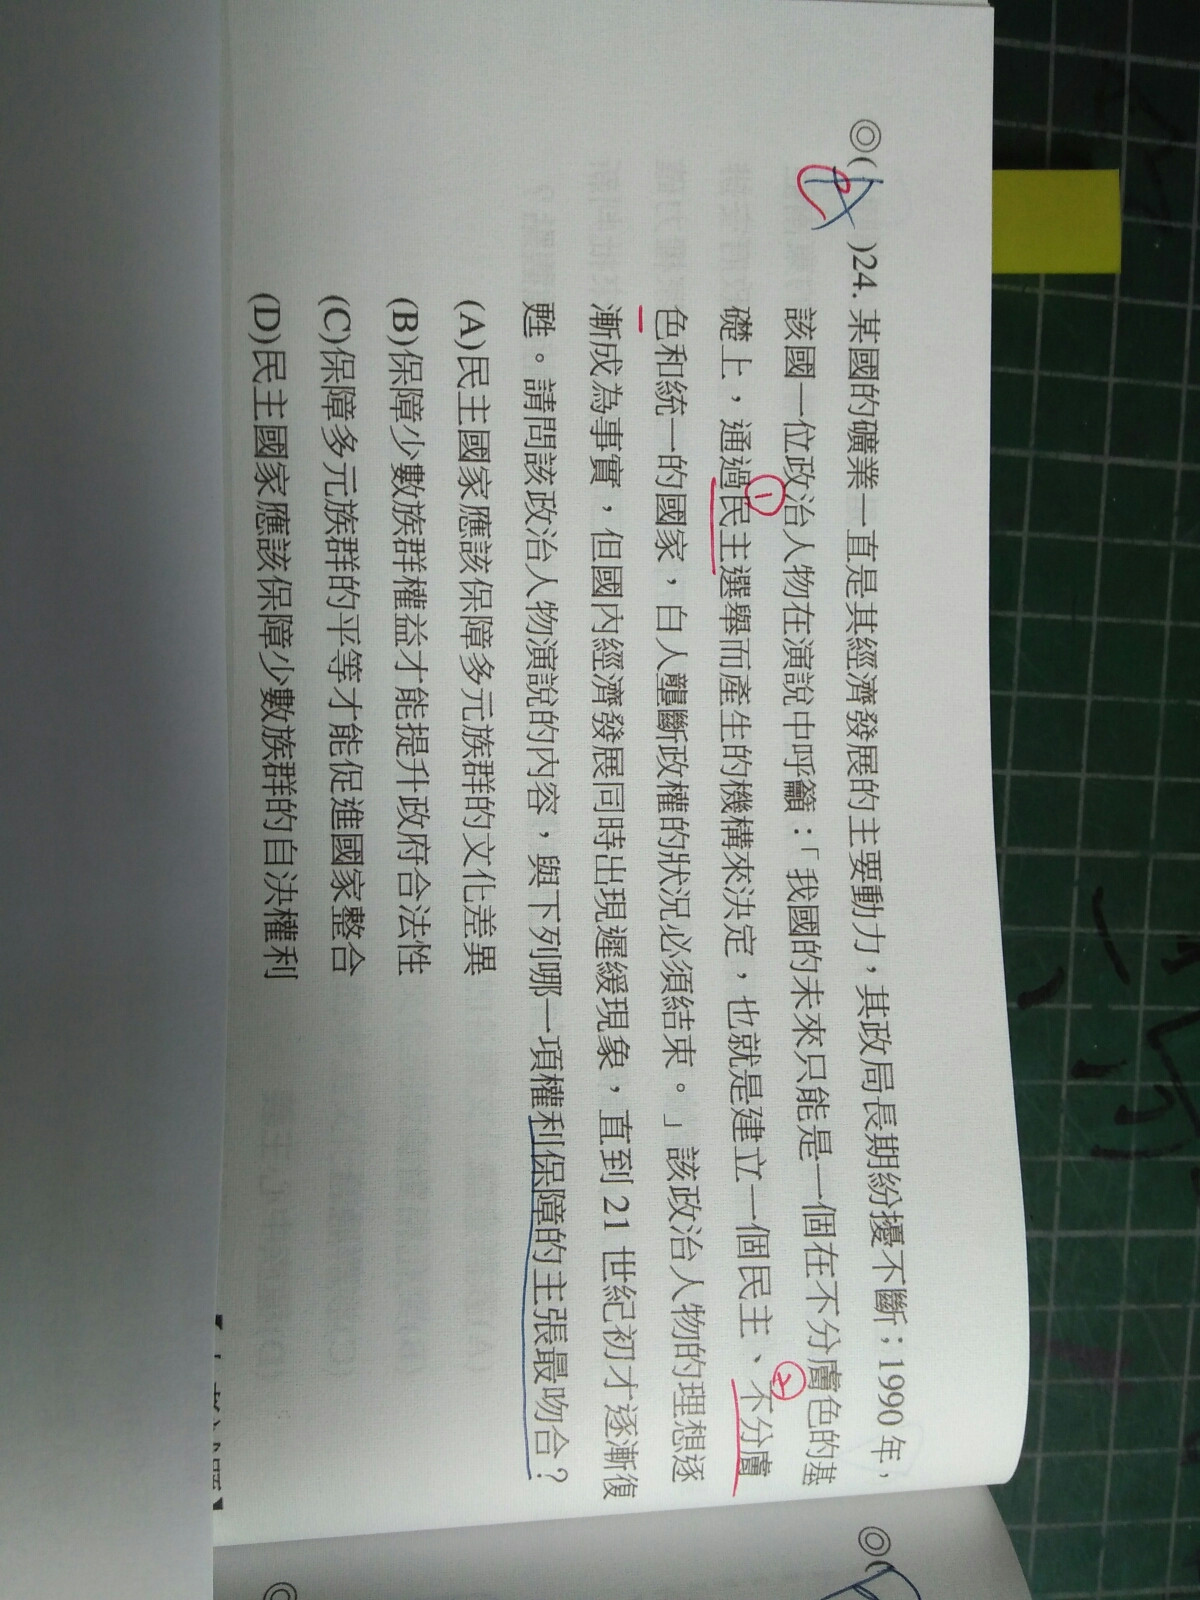 ◎( A C )24. 某國的礦業一直是其經濟發展的主要動力，其政局長期紛擾不斷；1990 年，
該國一位政治人物在演說中呼籲：「我國的未來只能是一個在不分膚色的基
① ②
礎上，通過民主選舉而產生的機構來決定，也就是建立一個民主、不分膚
色和統一的國家，白人壟斷政權的狀況必須結束。」該政治人物的理想逐
漸成為事實，但國內經濟發展同時出現遲緩現象，直到 21 世紀初才逐漸復
甦。請問該政治人物演說的內容，與下列哪一項權利保障的主張最吻合？
(A)民主國家應該保障多元族群的文化差異
(B)保障少數族群權益才能提升政府合法性
(C)保障多元族群的平等才能促進國家整合
(D)民主國家應該保障少數族群的自決權利
◎(
◎